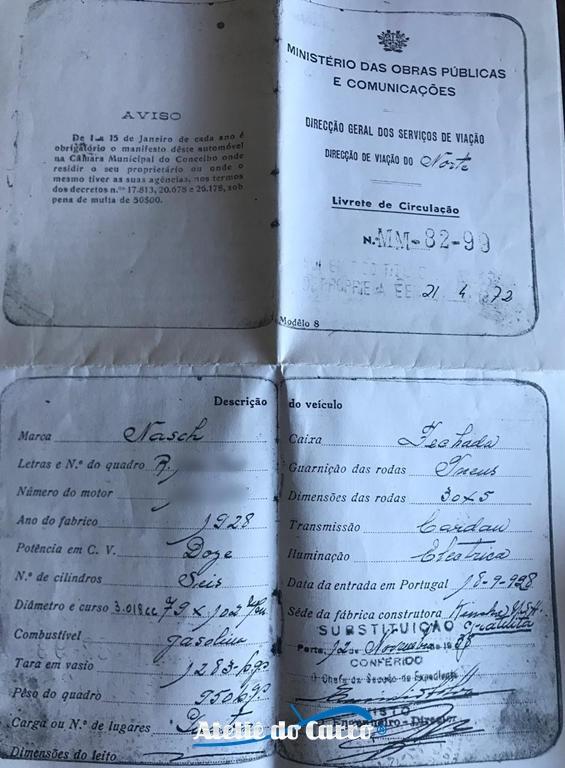 AVISO
De 1 a 15 de Janeiro de cada ano é
obrigatório o manifesto dêste automóvel
na Câmara Municipal do Concelho onde
residir o seu proprietário ou onde o
mesmo tiver as suas agências, nos termos
dos decretos n.os 17.813, 20.678 e 26.178, sob
pena de multa de 50$00.
MINISTÉRIO DAS OBRAS PÚBLICAS
E COMUNICAÇÕES
DIRECÇÃO GERAL DOS SERVIÇOS DE VIAÇÃO
DIRECÇÃO DE VIAÇÃO DO Norte
Livrete de Circulação
N. MM-82-99
21 4 972
Modêlo 8
Descrição do veículo
Marca Nasch
Letras e N.º do quadro R.
Número do motor
Ano do fabrico 1928
Potência em C. V. Doze
N.º de cilindros Seis
Diâmetro e curso 3.018cc 79 x 102
Combustível gasolina
Tara em vasio 1283
Pêso do quadro 950
Carga ou N.º de lugares
Dimensões do leito
Caixa Fechada
Guarnição das rodas Pneus
Dimensões das rodas 30x5
Transmissão Cardan
Iluminação Electrica
Data da entrada em Portugal 18-9-928
Séde da fábrica construtora
SUBSTITUIÇÃO gratuita
Porto, 12 de Novembro de 19
CONFERIDO
O Chefe da Secção de Expediente
VISTO
O Engenheiro-Director
Ateliê do Carro